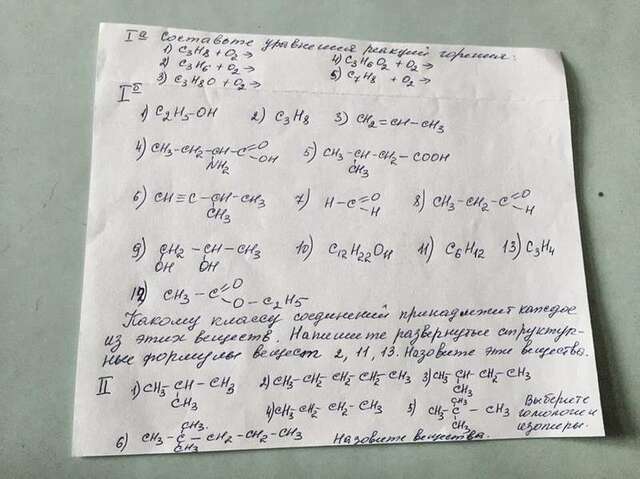 Iа Составьте уравнения реакций горения:
1) C3H8 + O2 → 4) C3H6O2 + O2 →
2) C3H6 + O2 → 5) C7H8 + O2 →
3) C3H8O + O2 →
Iб
1) C2H5-OH 2) C3H8 3) CH2=CH-CH3
4) CH3-CH2-CH-C=O 5) CH3-CH-CH2-COOH
NH2 OH CH3
6) CH≡C-CH-CH3 7) H-C=O 8) CH3-CH2-C=O
CH3 H H
9) CH2-CH-CH3 10) C12H22O11 11) C6H12 13) C3H4
OH OH
12) CH3-C=O
O-C2H5
Какому классу соединений принадлежит каждое
из этих веществ. Напишите развернутые структур-
ные формулы веществ 2, 11, 13. Назовите эти вещества.
II 1) CH3-CH-CH3 2) CH3-CH2-CH2-CH2-CH3 3) CH3-CH-CH2-CH3
CH3 CH3
4) CH3-CH2-CH2-CH3 5) CH3-C-CH3 Выберите
CH3 CH3 гомологи и
изомеры.
6) CH3-C-CH2-CH2-CH3 Назовите вещества.
CH3 CH3